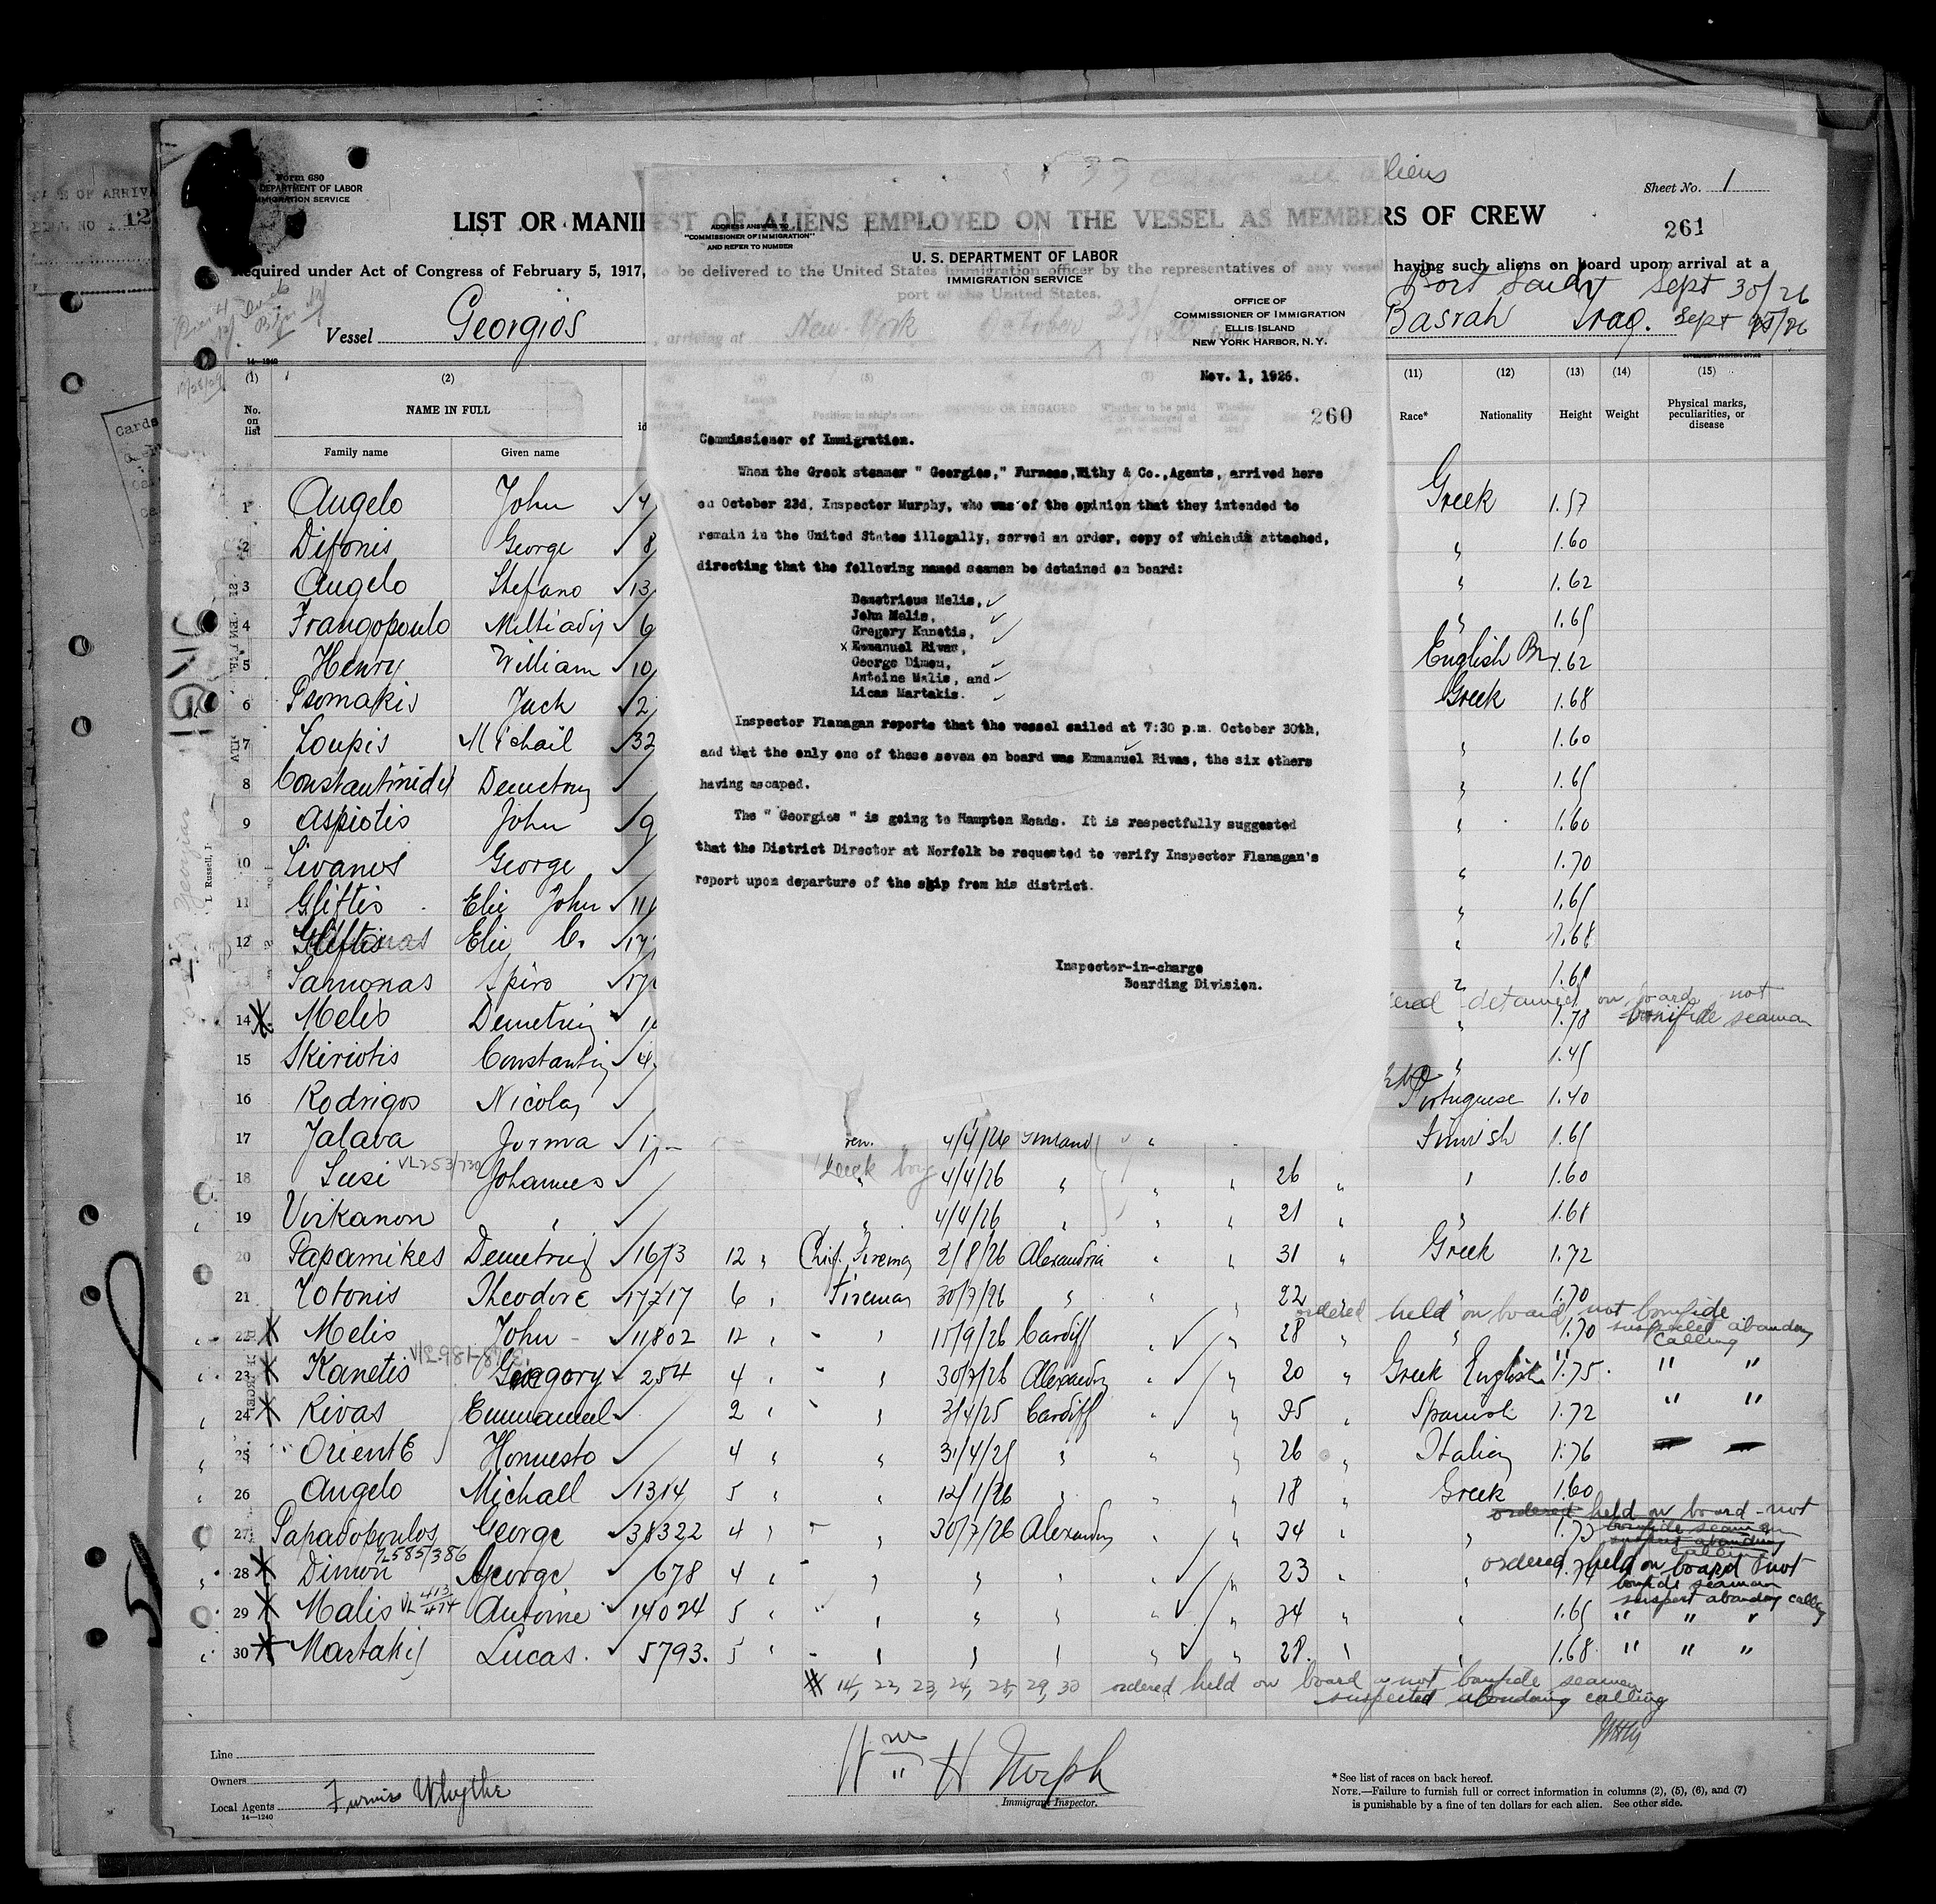 Form 680
DEPARTMENT OF LABOR
IMMIGRATION SERVICE
aliens
Sheet No. 1
261
LIST OR MANIFEST OF ALIENS EMPLOYED ON THE VESSEL AS MEMBERS OF CREW
Required under Act of Congress of February 5, 1917, to be delivered to the United States immigration officer by the representatives of any vessel having such aliens on board upon arrival at a
port of the United States.
Port Said Sept 30/26
Vessel Georgios , arriving at New York October 23/
Basrah Iraq. Sept
ADDRESS ANSWER TO
"COMMISSIONER OF IMMIGRATION"
AND REFER TO NUMBER
U. S. DEPARTMENT OF LABOR
IMMIGRATION SERVICE
OFFICE OF
COMMISSIONER OF IMMIGRATION
ELLIS ISLAND
NEW YORK HARBOR, N. Y.
Nov. 1, 1926.
260
Commissioner of Immigration.
When the Greek steamer " Georgios," Furness,Withy & Co.,Agents, arrived here
on October 23d, Inspector Murphy, who was of the opinion that they intended to
remain in the United States illegally, served an order, copy of which is attached,
directing that the following named seamen be detained on board:
Demetrious Melis,
John Melis,
Gregory Kanetis,
x Emmanuel Rivas,
George Dimou,
Antoine Malis, and
Licas Martakis.
Inspector Flanagan reports that the vessel sailed at 7:30 p.m. October 30th,
and that the only one of these seven on board was Emmanuel Rivas, the six others
having escaped.
The " Georgios " is going to Hampton Roads. It is respectfully suggested
that the District Director at Norfolk be requested to verify Inspector Flanagan's
report upon departure of the ship from his district.
Inspector-in-charge
Boarding Division.
(1) (2) (11) (12) (13) (14) (15)
No. on list NAME IN FULL Race* Nationality Height Weight Physical marks, peculiarities, or disease
Family name Given name
1 Angelo John 4 Greek 1.57
2 Difonis George 8 " 1.60
3 Angelo Stefano 13 " 1.62
4 Frangopoulo Miltiadis 6 " 1.65
5 Henry William 10 English Br 1.62
6 Psomakis Jack 2 Greek 1.68
7 Loupis Michail 32 " 1.60
8 Constantinidis Demetrius " 1.65
9 Aspiotis John 9 " 1.60
10 Livanos George " 1.70
11 Gliftis Elie John 11 " 1.65
12 Elie C. 17 " 1.68
Samonas Spiro 17 " 1.65
detained on board not
14 Melis Demetrius " 1.78 bonifide seaman
15 Skiriotis Constantin 4 " 1.45
16 Rodrigos Nicolas Portuguese 1.40
17 Jalava Jorma 4/4/26 Finland " Finnish 1.65
18 Susi VL253/730 Johannes Deck boy 4/4/26 " " " 26 " " 1.60
19 Virkanon " " 4/4/26 " " " 21 " " 1.68
20 Papamikes Demetrius 1673 12 " Chief Fireman 2/8/26 Alexandria " " 31 " Greek 1.72
21 Totonis Theodore 17717 6 " Fireman 30/7/26 " " " 22 " " 1.70
ordered held on board not bonifide
22 Melis John 11802 12 " " 15/9/26 Cardiff " " 28 " " 1.70 suspected abandon calling
23 Kanetis Gregory 254 4 " " 30/7/26 Alexandria " " 20 " Greek English 1.75 " "
24 Rivas Emmanuel 2 " " 3/4/25 Cardiff " " 35 " Spanish 1.72 " "
25 Oriente Honnesto 4 " " " " " 26 " Italian 1.76
26 Angelo Michael 1314 5 " " 12/1/26 " " " 18 " Greek 1.60
ordered held on board - not
27 Papadopoulos George 38322 4 " " 30/7/26 Alexandria " " 34 " " 1.73 bonifide seaman
suspect abandon calling
ordered held on board not
28 Dimou 7L585/386 George 678 4 " " " " " " 23 " " bonifide seaman
suspect abandon calling
29 Malis VL 413/474 Antoine 14024 5 " " " " " " 34 " " 1.65 " " "
30 Martakis Lucas. 5793. 5 " " " " " " 28. " " 1.68 " " "
# 14, 22, 23, 24, 28, 29, 30 ordered held on board not bonfide seamen
suspected abandong calling
WHM
Line
Owners
Local Agents Furness Whythe
14—1240
Wm H Murphy
Immigrant Inspector.
* See list of races on back hereof.
NOTE.—Failure to furnish full or correct information in columns (2), (5), (6), and (7)
is punishable by a fine of ten dollars for each alien. See other side.